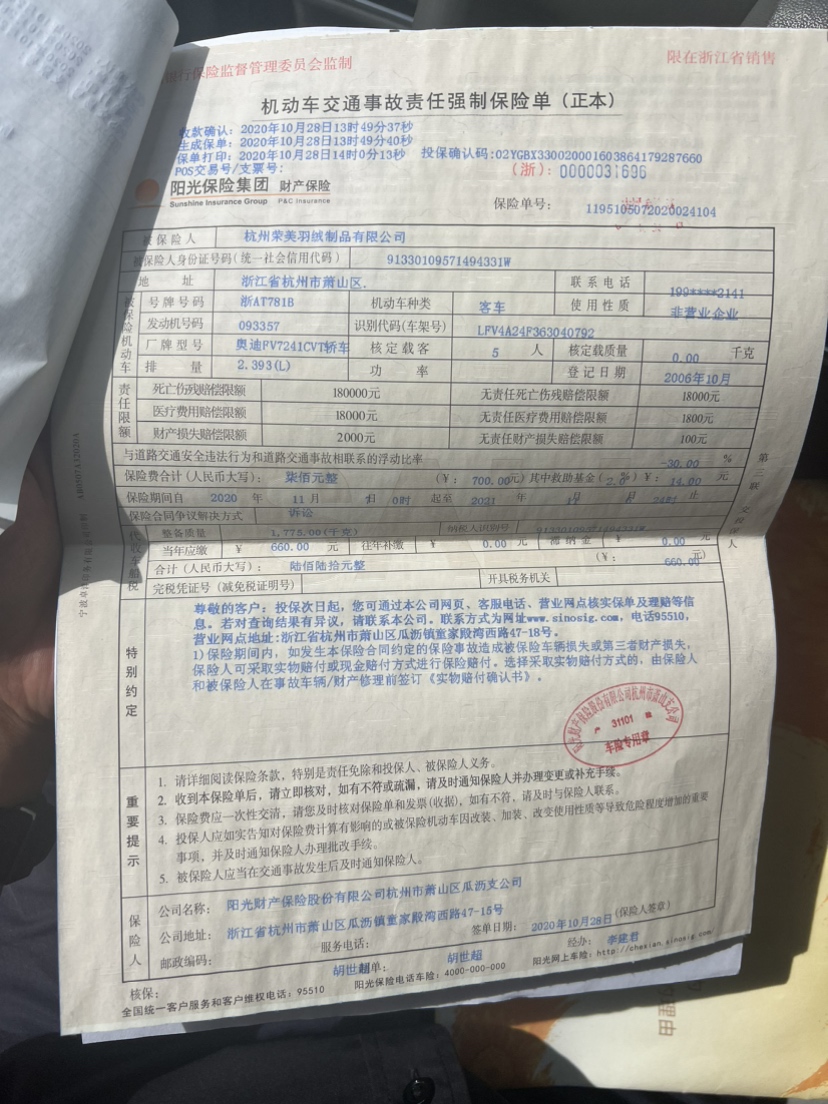 银行保险监督管理委员会监制
限在浙江省销售
机动车交通事故责任强制保险单（正本）
收款确认：2020年10月28日13时49分37秒
生成保单：2020年10月28日13时49分40秒
保单打印：2020年10月28日14时0分13秒 投保确认码：02YGBX330020001603864179287660
POS交易号/支票号：
（浙）：0000031696
阳光保险集团 财产保险
Sunshine Insurance Group P&C Insurance
保险单号： 1195105072020024104
被保险人 杭州荣美羽绒制品有限公司
被保险人身份证号码（统一社会信用代码） 91330109571494331W
地 址 浙江省杭州市萧山区. 联系电话 199****2141
被保险机动车
号牌号码 浙AT781B 机动车种类 客车 使用性质 非营业企业
发动机号码 093357 识别代码（车架号） LFV4A24F363040792
厂牌型号 奥迪FV7241CVT轿车 核定载客 5 人 核定载质量 0.00 千克
排 量 2.393(L) 功 率 登记日期 2006年10月
责任限额
死亡伤残赔偿限额 180000元 无责任死亡伤残赔偿限额 18000元
医疗费用赔偿限额 18000元 无责任医疗费用赔偿限额 1800元
财产损失赔偿限额 2000元 无责任财产损失赔偿限额 100元
与道路交通安全违法行为和道路交通事故相联系的浮动比率 -30.00 %
保险费合计（人民币大写）： 柒佰元整 （¥： 700.00元）其中救助基金（2.0%）¥： 14.00 元
保险期间自 2020 年 11 月 日 0时 起至 2021 年 月 日 24时 止
保险合同争议解决方式 诉讼
代收车船税
整备质量 1,775.00(千克) 纳税人识别号 91330109571494331W
当年应缴 ¥ 660.00 元 往年补缴 ¥ 0.00 元 滞纳金 ¥ 0.00 元
合计（人民币大写）： 陆佰陆拾元整 （¥： 660.00 元）
完税凭证号（减免税证明号） 开具税务机关
特别约定
尊敬的客户：投保次日起，您可通过本公司网页、客服电话、营业网点核实保单及理赔等信
息。若对查询结果有异议，请联系本公司。联系方式为网址www.sinosig.com，电话95510，
营业网点地址：浙江省杭州市萧山区瓜沥镇童家殿湾西路47-18号。
1)保险期间内，如发生本保险合同约定的保险事故造成被保险车辆损失或第三者财产损失，
保险人可采取实物赔付或现金赔付方式进行保险赔付。选择采取实物赔付方式的，由保险人
和被保险人在事故车辆/财产修理前签订《实物赔付确认书》。
31101
车险专用章
重要提示
1. 请详细阅读保险条款，特别是责任免除和投保人、被保险人义务。
2. 收到本保险单后，请立即核对，如有不符或疏漏，请及时通知保险人并办理变更或补充手续。
3. 保险费应一次性交清，请您及时核对保险单和发票（收据），如有不符，请及时与保险人联系。
4. 投保人应如实告知对保险费计算有影响的或被保险机动车因改装、加装、改变使用性质等导致危险程度增加的重要
事项，并及时通知保险人办理批改手续。
5. 被保险人应当在交通事故发生后及时通知保险人。
保险人
公司名称： 阳光财产保险股份有限公司杭州市萧山区瓜沥支公司
公司地址： 浙江省杭州市萧山区瓜沥镇童家殿湾西路47-15号
邮政编码： 服务电话： 签单日期： 2020年10月28日 （保险人签章）
核保： 胡世超 单： 胡世超 经办： 李建君
全国统一客户服务和客户维权电话：95510 阳光保险电话车险：4000-000-000 阳光网上车险：http://chexian.sinosig.com/
第三联
理由